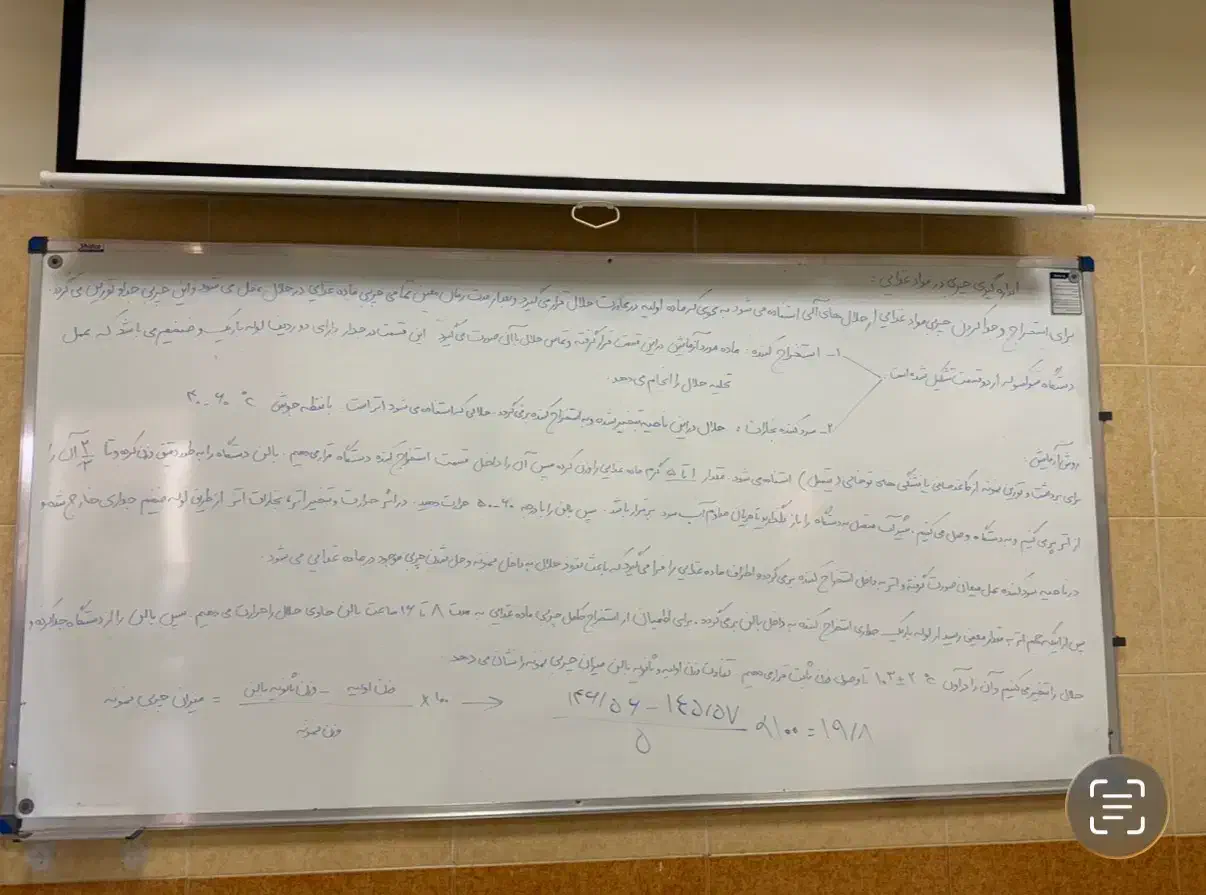 اندازه گیری چربی در مواد غذایی :
برای استخراج و جدا کردن چربی مواد غذایی از حلال های آلی استفاده می شود به طوری که ماده اولیه در مجاورت حلال قرار می گیرد و بعد از مدت زمان معین تمامی چربی ماده غذایی در حلال حل می شود و این چربی جدا و توزین می گردد.
دستگاه سوکسوله از دو قسمت تشکیل شده است
۱- استخراج کننده : ماده مورد آزمایش در این قسمت قرار گرفته و تماس حلال با آن صورت می گیرد این قسمت در جدار دارای دو ردیف لوله باریک و ضخیم می باشد که عمل
تخلیه حلال را انجام می دهد.
۲- سرد کننده بخارات : حلال در این ناحیه تبخیر شده و به استخراج کننده برمی گردد. حلالی که استفاده می شود اتر است با نقطه جوش ۴۰-۶۰ °c
روش آزمایش:
برای برداشت و توزین نمونه از کاغذ صافی یا فشنگی های توخالی (تیمبل) استفاده می شود مقدار ۱ تا ۵ گرم ماده غذایی را وزن کرده سپس آن را داخل قسمت استخراج کننده دستگاه قرار می دهیم. بالن دستگاه را به طور دقیق وزن کرده و تا ۲/۳ آن را
از اتر پر می کنیم و به دستگاه وصل می کنیم. شیر آب متصل به دستگاه را باز گذاریم تا جریان مداوم آب سرد برقرار باشد. سپس بالن را با درجه ۵۰-۶۰ حرارت دهید. در اثر حرارت و تبخیر اتر، بخارات اتر از طریق لوله ضخیم جداری خارج شده و
در ناحیه سرد کننده عمل میعان صورت گرفته و اتر به داخل استخراج کننده برمی گردد و اطراف ماده غذایی را فرا می گیرد که باعث نفوذ حلال به داخل نمونه و حل شدن چربی موجود در ماده غذایی می شود.
پس از اینکه حجم اتر به مقدار معینی رسید از لوله باریک جداری استخراج کننده به داخل بالن برمی گردد. برای اطمینان از استخراج کامل چربی ماده غذایی به مدت ۸ تا ۱۶ ساعت بالن حاوی حلال را حرارت می دهیم. سپس بالن را از دستگاه جدا کرده و
حلال را تبخیر می کنیم و آن را در آون ۱۰۳±۲ °c تا وصول وزن ثابت قرار می دهیم تفاوت وزن اولیه و ثانویه بالن میزان چربی نمونه را نشان می دهد.
میزان چربی نمونه = (وزن ثانویه بالن - وزن اولیه) / وزن نمونه ×۱۰۰ → (۱۴۶/۵۶ - ۱۴۵/۵۷) / ۵ ×۱۰۰ = ۱۹/۸